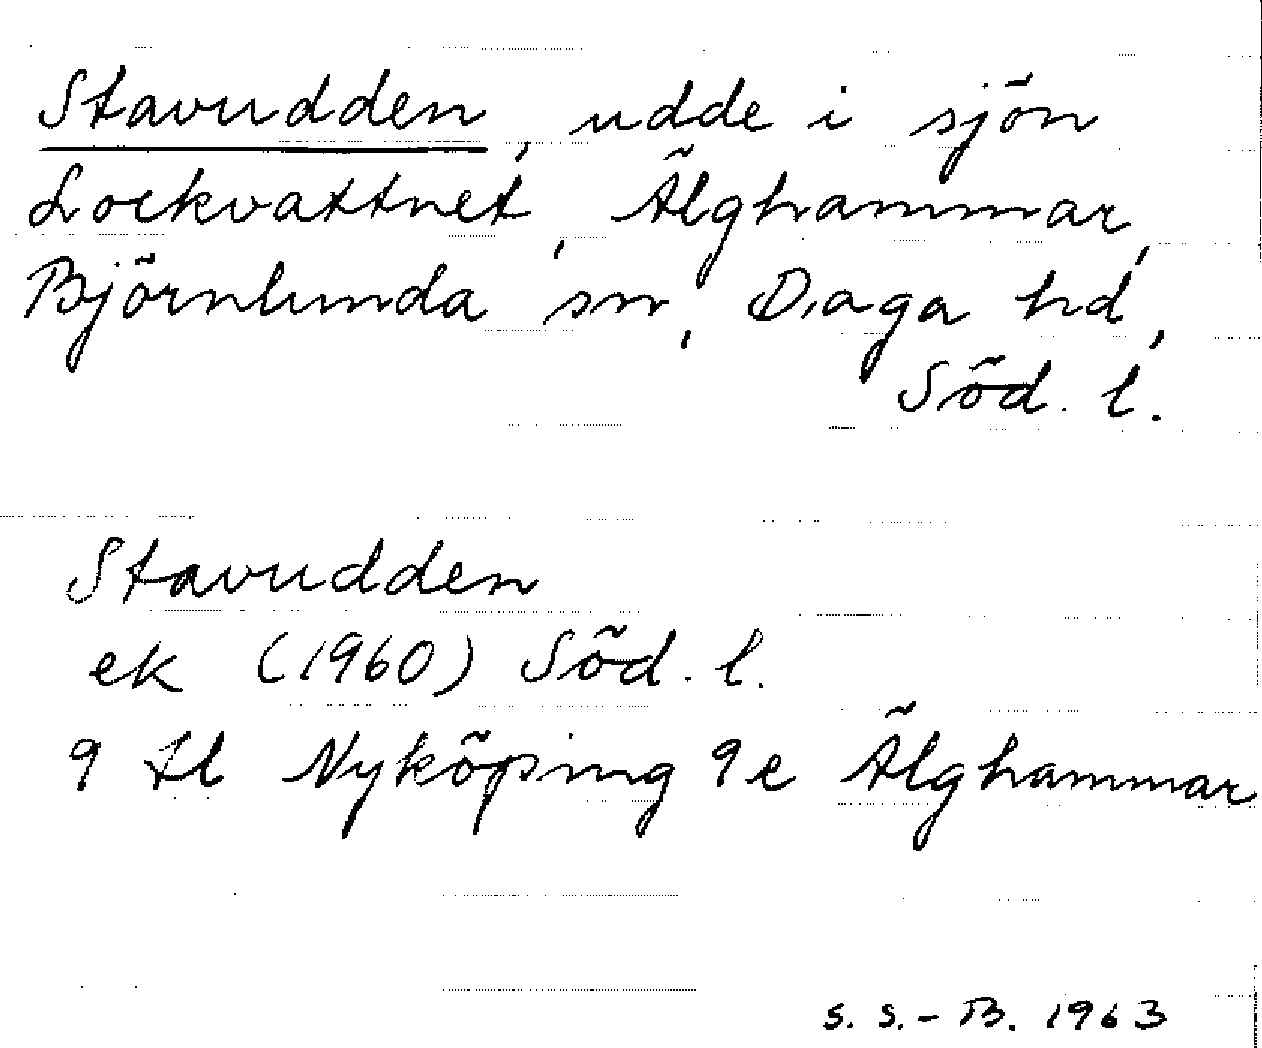 Stavudden, udde i sjön
Lockvattnet, Älghammar,
Björnlunda sn, Daga hd,
Söd. l.
Stavudden
ek (1960) Söd. l.
9 tl Nyköping 9e Älghammar
S. S.-B. 1963